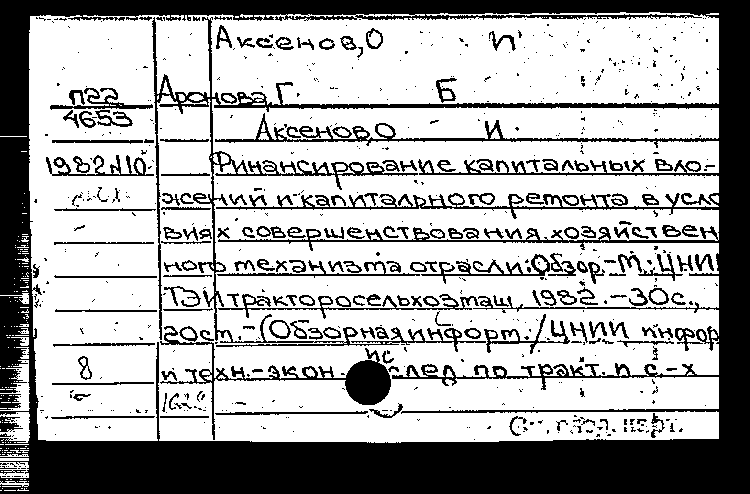 Аксенов, О И
п22 Аронова, Г. Б
4653
Аксенов, О И.
1982 N10 Финансирование капитальных вло-
жений и капитального ремонта в усло
виях совершенствования хозяйствен
ного механизма отрасли: Обзор.-М.: ЦНИИ
ТЭИтракторосельхозмаш, 1982.-30с.,
20см.-(Обзорная информ./ЦНИИ информ
8 и техн.-экон. исслед. по тракт. и с.-х